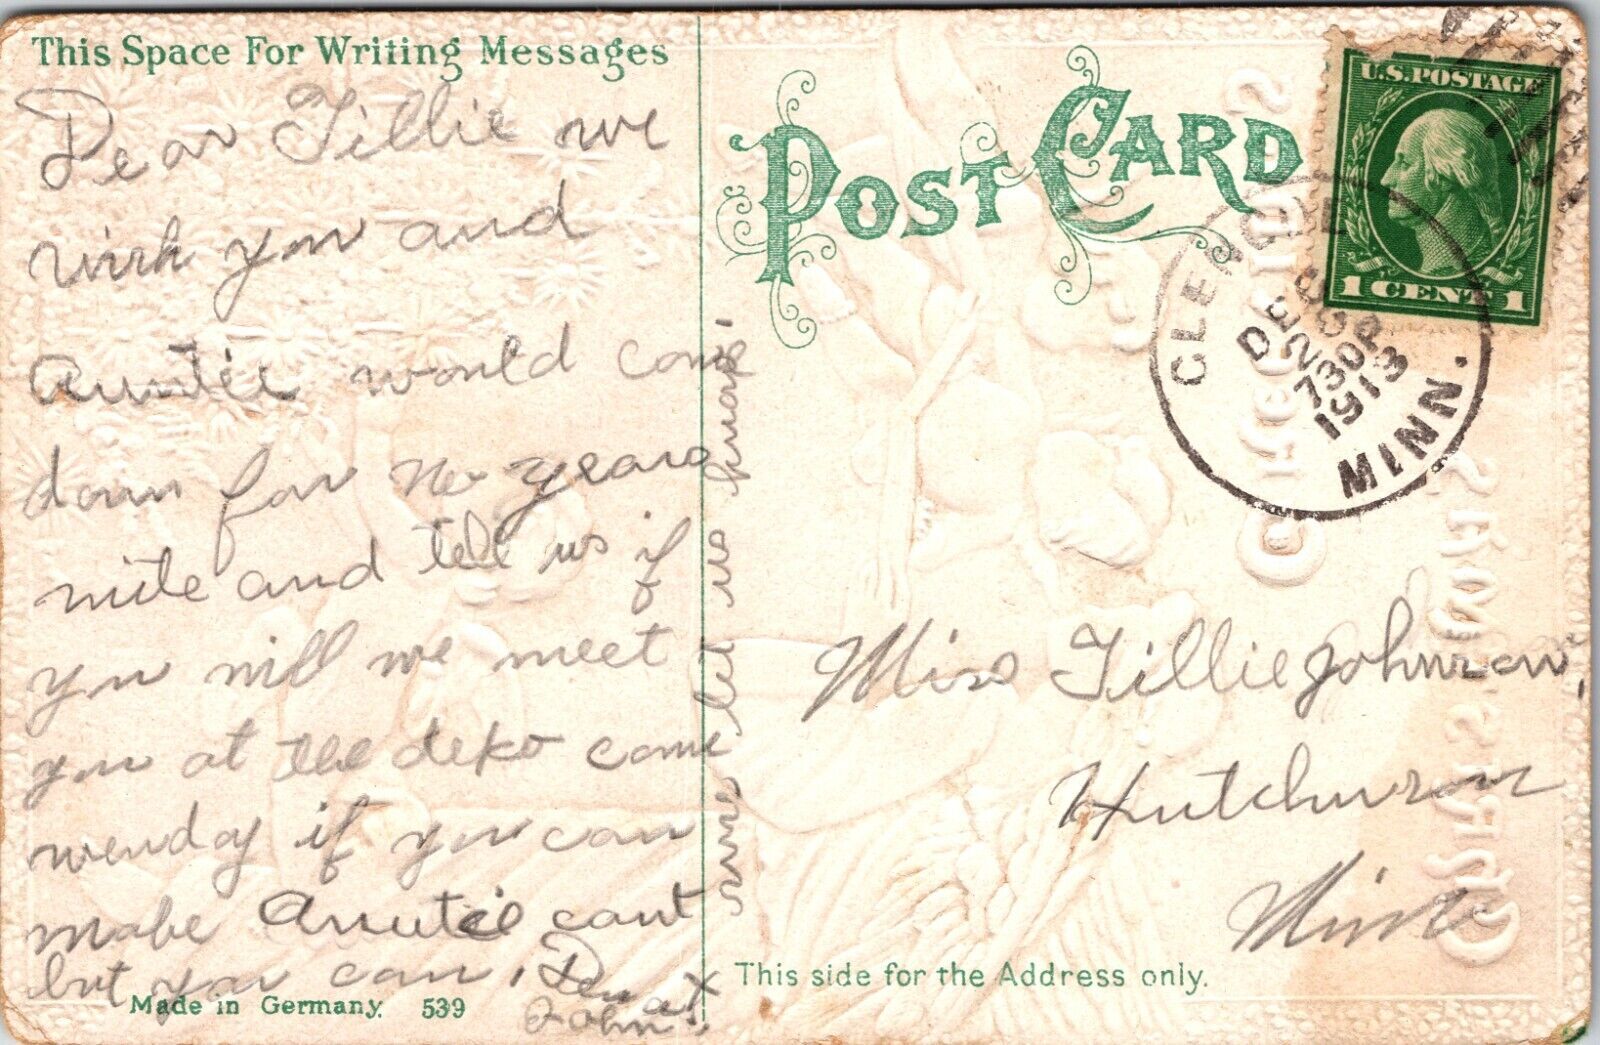 This Space For Writing Messages
Dear Tillie we
wish you and
Auntie would come
down for Ne years
nite and tell us if
you will we meet
you at the depo come
wensday if you can
make Auntie cant
but you can, Dena &
John
sure let us know
Made in Germany. 539
POST CARD
U.S.POSTAGE
1 CENT 1
GLENCOE
DEC
26
730P
1913
MINN.
Miss Tillie Johnson,
Hutchinson
Minn
This side for the Address only.